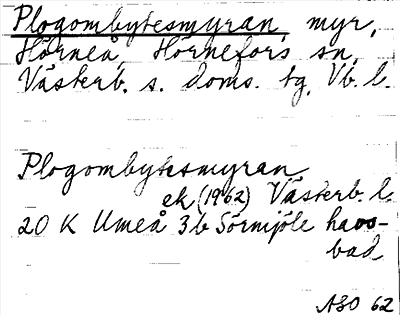 Plogombytesmyran, myr,
Hörneå, Hörnefors sn,
Västerb. s. doms. tg, Vb. l.
Plogombytesmyran,
ek (1962) Västerb. l.
20 K Umeå 3b Sörmjöle havs-
bad
ASO 62